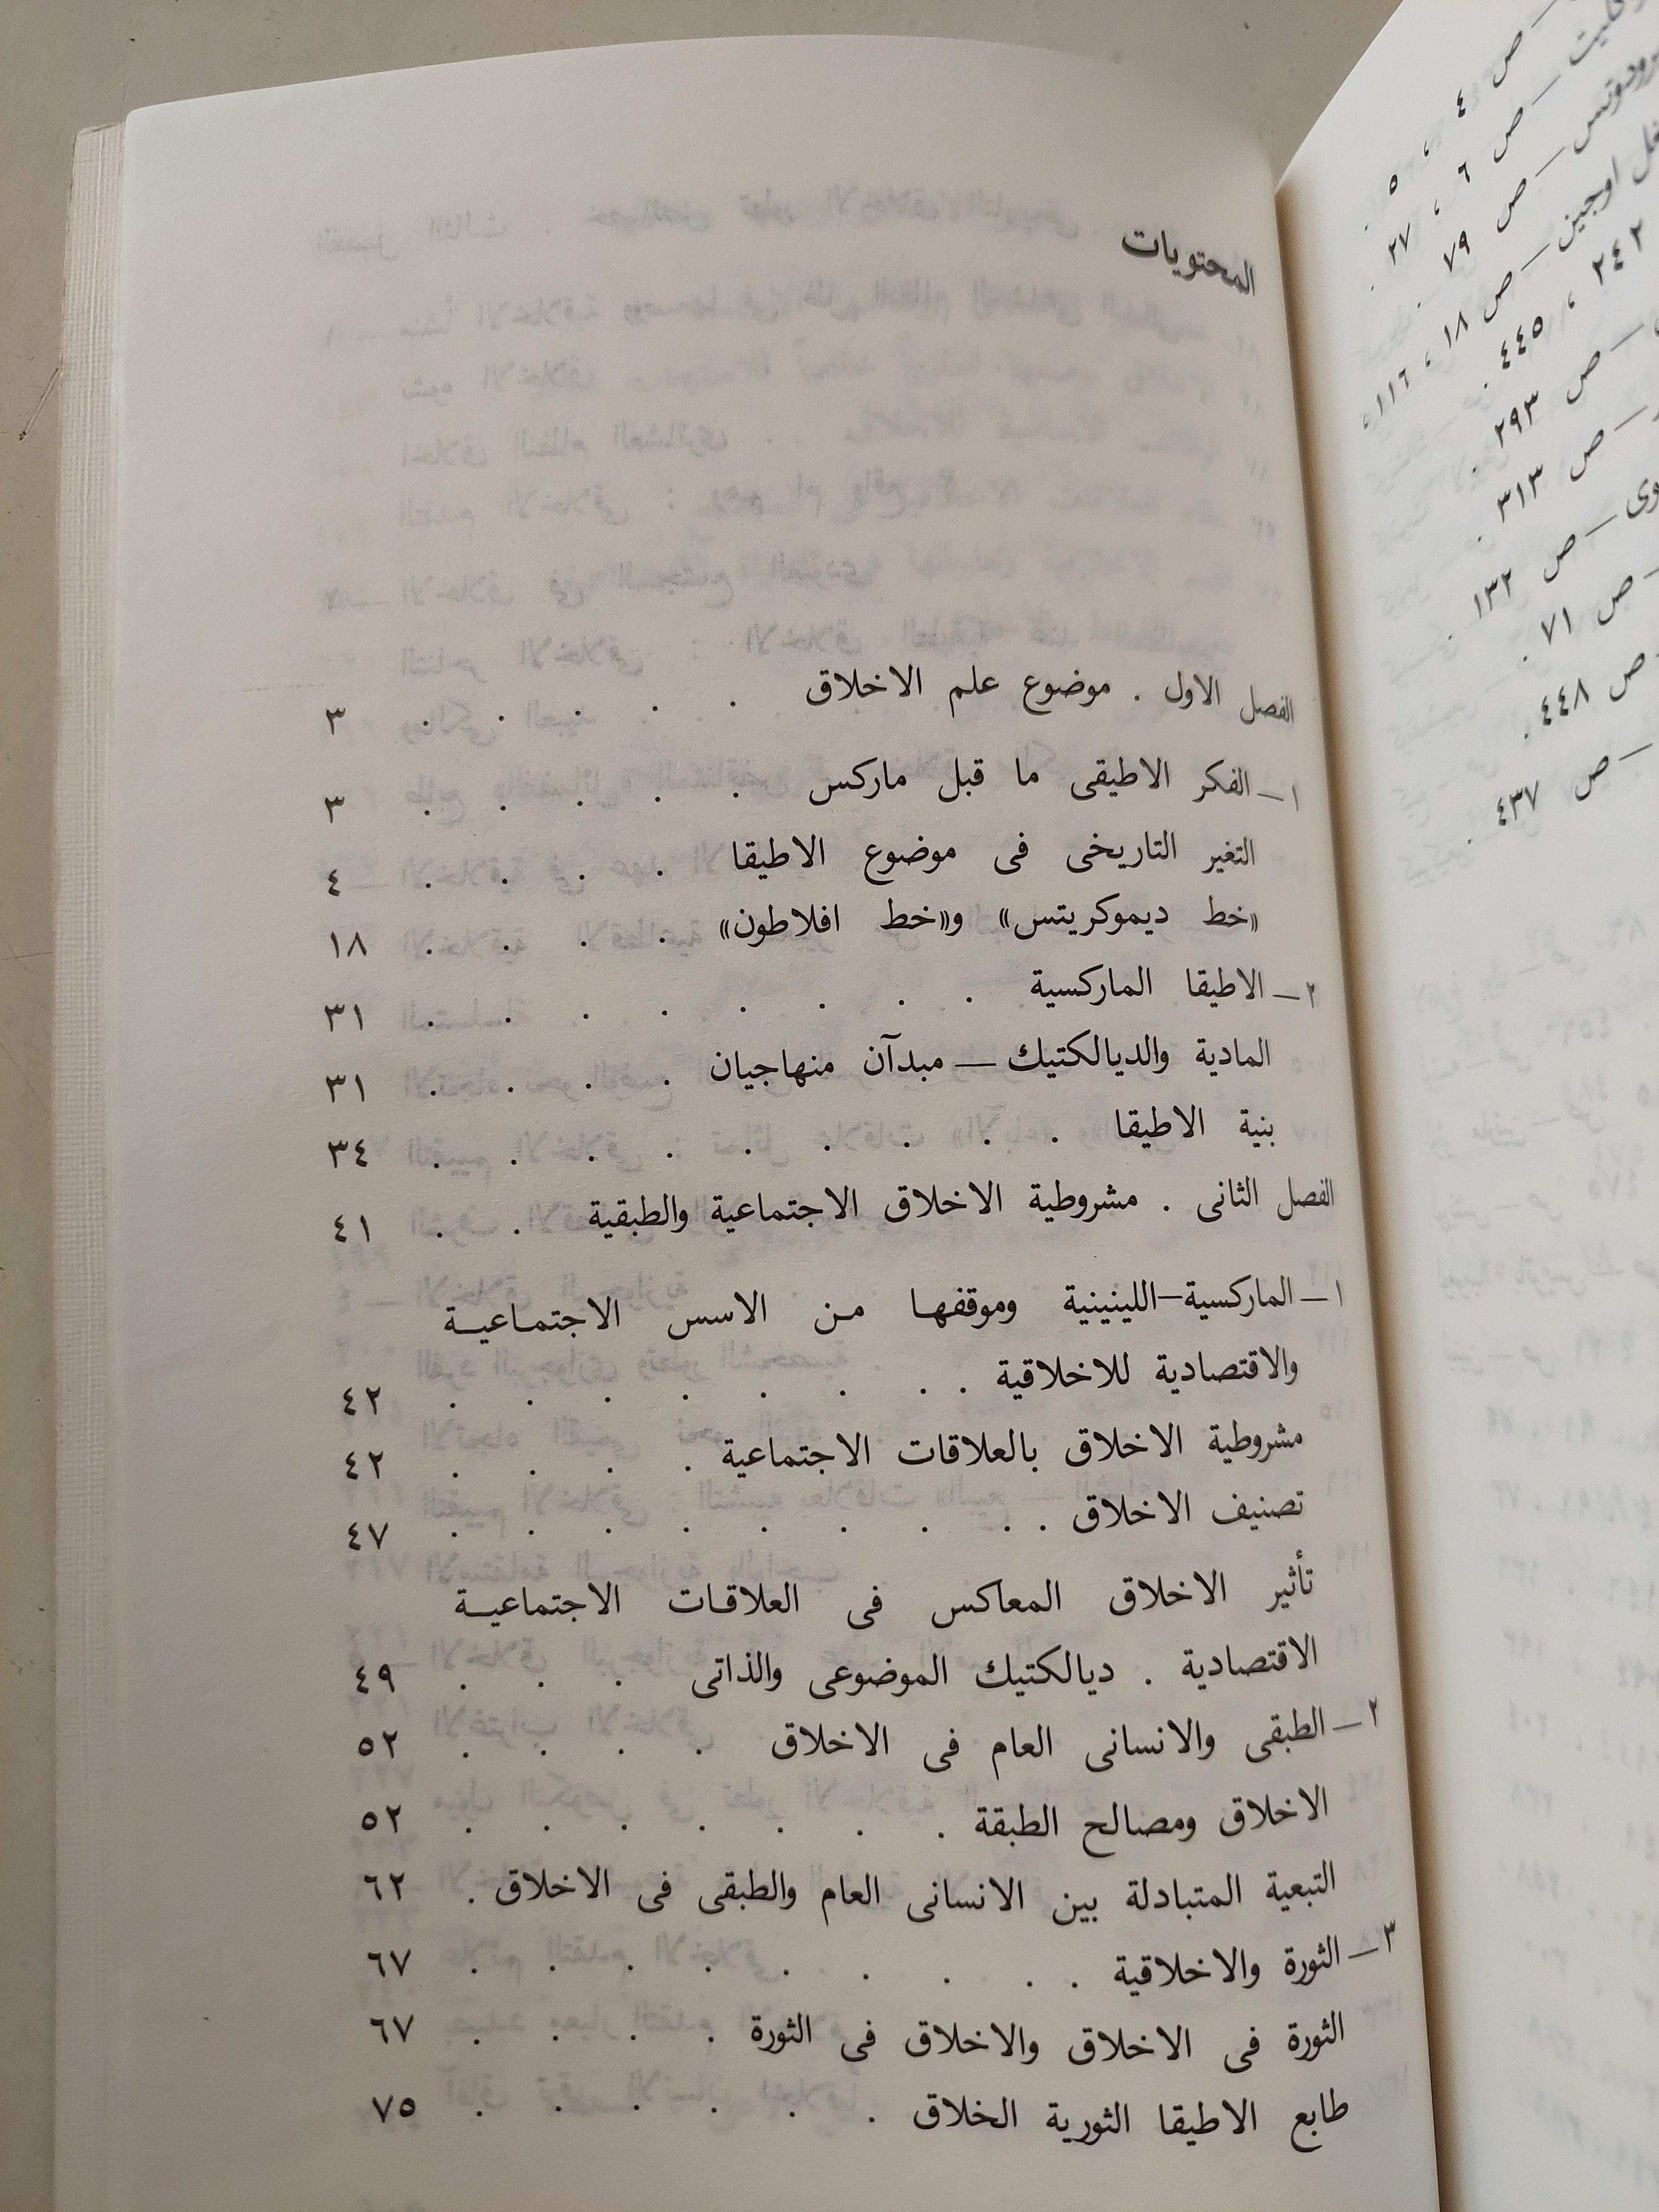 المحتويات
الفصل الاول . موضوع علم الاخلاق . . . . . ٣
١ــ الفكر الاطيقى ما قبل ماركس . . . . . ٣
التغير التاريخى فى موضوع الاطيقا . . . . ٤
«خط ديموكريتس» و«خط افلاطون» . . . . ١٨
٢ــ الاطيقا الماركسية . . . . . . . . ٣١
المادية والديالكتيك ــ مبدآن منهاجيان . . . . ٣١
بنية الاطيقا . . . . . . . . . ٣٤
الفصل الثانى . مشروطية الاخلاق الاجتماعية والطبقية . . ٤١
١ــ الماركسية–اللينينية وموقفها من الاسس الاجتماعية
والاقتصادية للاخلاقية . . . . . . . . ٤٢
مشروطية الاخلاق بالعلاقات الاجتماعية . . . . ٤٢
تصنيف الاخلاق . . . . . . . . . ٤٧
تأثير الاخلاق المعاكس فى العلاقات الاجتماعية
الاقتصادية . ديالكتيك الموضوعى والذاتى . . . ٤٩
٢ــ الطبقى والانسانى العام فى الاخلاق . . . . ٥٢
الاخلاق ومصالح الطبقة . . . . . . . ٥٢
التبعية المتبادلة بين الانسانى العام والطبقى فى الاخلاق . ٦٢
٣ــ الثورة والاخلاقية . . . . . . . . ٦٧
الثورة فى الاخلاق والاخلاق فى الثورة . . . . ٦٧
طابع الاطيقا الثورية الخلاق . . . . . . ٧٥
ــ ص ٤ ، ٥ .
ــ ص ٦ ، ٢٧ .
ــ ص ٧٩ .
اوجين ــ ص ١٨ ، ١١٦ ،
٢٤٢ ، ٤٤٥ .
ــ ص ٢٩٣ .
ــ ص ٣١٣ .
ــ ص ١٣٢ .
ــ ص ٧١ .
ص ٤٤٨ .
ــ ص ٤٣٧ .